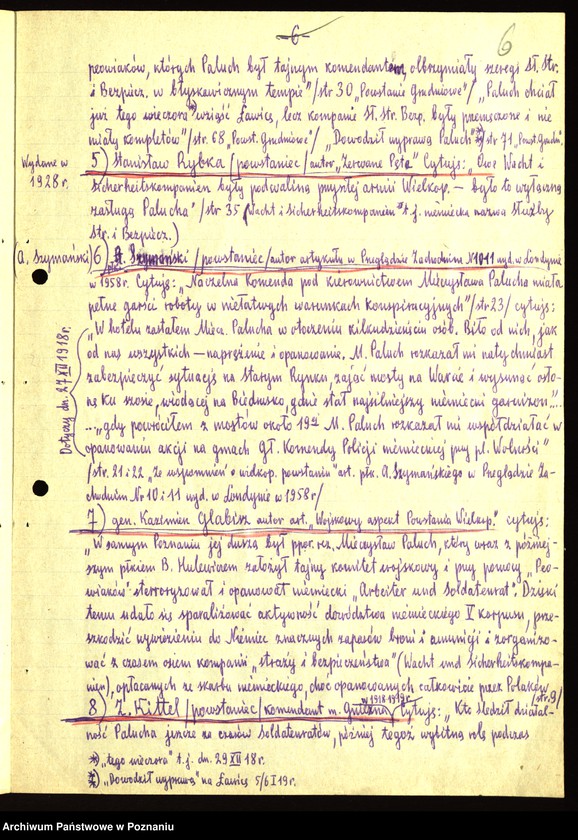 6
6
peowiaków, których Paluch był tajnym komendantem, olbrzymiały szeregi Sł. Str.
i Bezpiecz. w błyskawicznym tempie" /str 30 „Powstanie Grudniowe"/ „Paluch chciał
już tego wieczora *) wziąść Ławicę, lecz kompanie Sł. Str. Bezp. były przemęczone i nie
miały kompletów" /str. 68 „Powst. Grudniowe"/ „Dowodził wyprawą Paluch" /str 71 „Powst. Grudn."
Wydane w
1928 r.
5) Stanisław Rybka /powstaniec/ autor „Zerwane Pęta" Cytuję: „Owe Wacht i
Sicherheitskompanien były podwaliną przyszłej armii Wielkop. — było to wyłączną
zasługą Palucha" /str 35 (Wacht i Sicherheitskompanien t.j. niemiecka nazwa Służby
Str. i Bezpiecz.)
(A. Szymański) 6) A. Szymański /powstaniec/ autor artykułu w Przeglądzie Zachodnim N 10 i 11 wyd. w Londynie
w 1958 r. Cytuję: „Naczelna Komenda pod kierownictwem Mieczysława Palucha miała
pełne garści roboty w niełatwych warunkach konspiracyjnych" /str 23/ cytuję:
Dotyczy dn. 27 XII 1918 r.
„W hotelu zastałem Miecz. Palucha w otoczeniu kilkudziesięciu osób. Biło od nich, jak
od nas wszystkich — naprężenie i opanowanie. M. Paluch rozkazał mi natychmiast
zabezpieczyć sytuację na Starym Rynku, zająć mosty na Warcie i wysunąć osło-
nę ku szosie, wiodącej na Biedrusko, gdzie stał najsilniejszy niemiecki garnizon"...
..."gdy powróciłem z mostów około 19ej M. Paluch rozkazał mi współdziałać w
opanowaniu akcji na gmach Gł. Komendy Policji niemieckiej przy pl. Wolności"
/str. 21 i 22 „Ze wspomnień o wielkop. powstaniu" art. płk. A. Szymańskiego w Przeglądzie Za-
chodnim Nr 10 i 11 wyd. w Londynie w 1958 r/
7) gen. Kazimierz Glabisz autor art. „Wojskowy aspekt Powstania Wielkop." cytuję:
„W samym Poznaniu jej duszą był ppor. rez. Mieczysław Paluch, który wraz z później-
szym płkiem B. Hulewiczem założył tajny komitet wojskowy i przy pomocy „Peo-
wiaków" sterroryzował i opanował niemiecki „Arbeiter und Soldatenrat". Dzięki
temu udało się sparaliżować aktywność dowództwa niemieckiego V korpusu, prze-
szkodzić wywiezieniu do Niemiec znacznych zapasów broni i amunicji i zorganizo-
wać z czasem osiem kompanii „straży i bezpieczeństwa" (Wacht und Sicherheitskompa-
nien), opłacanych ze skarbu niemieckiego, choć opanowanych całkowicie przez Polaków /str. 9/
8) Z. Kittel /powstaniec/ komendant m. Gniezna w 1918-1919 r./ Cytuję: „Kto śledził działal-
ność Palucha jeszcze za czasów Soldatenratów, później tegoż wybitną rolę podczas
*) „tego wieczora" t.j. dn. 29 XII 18 r.
*) „Dowodził wyprawą" na Ławicę 5/6 I 19 r.
Archiwum Państwowe w Poznaniu